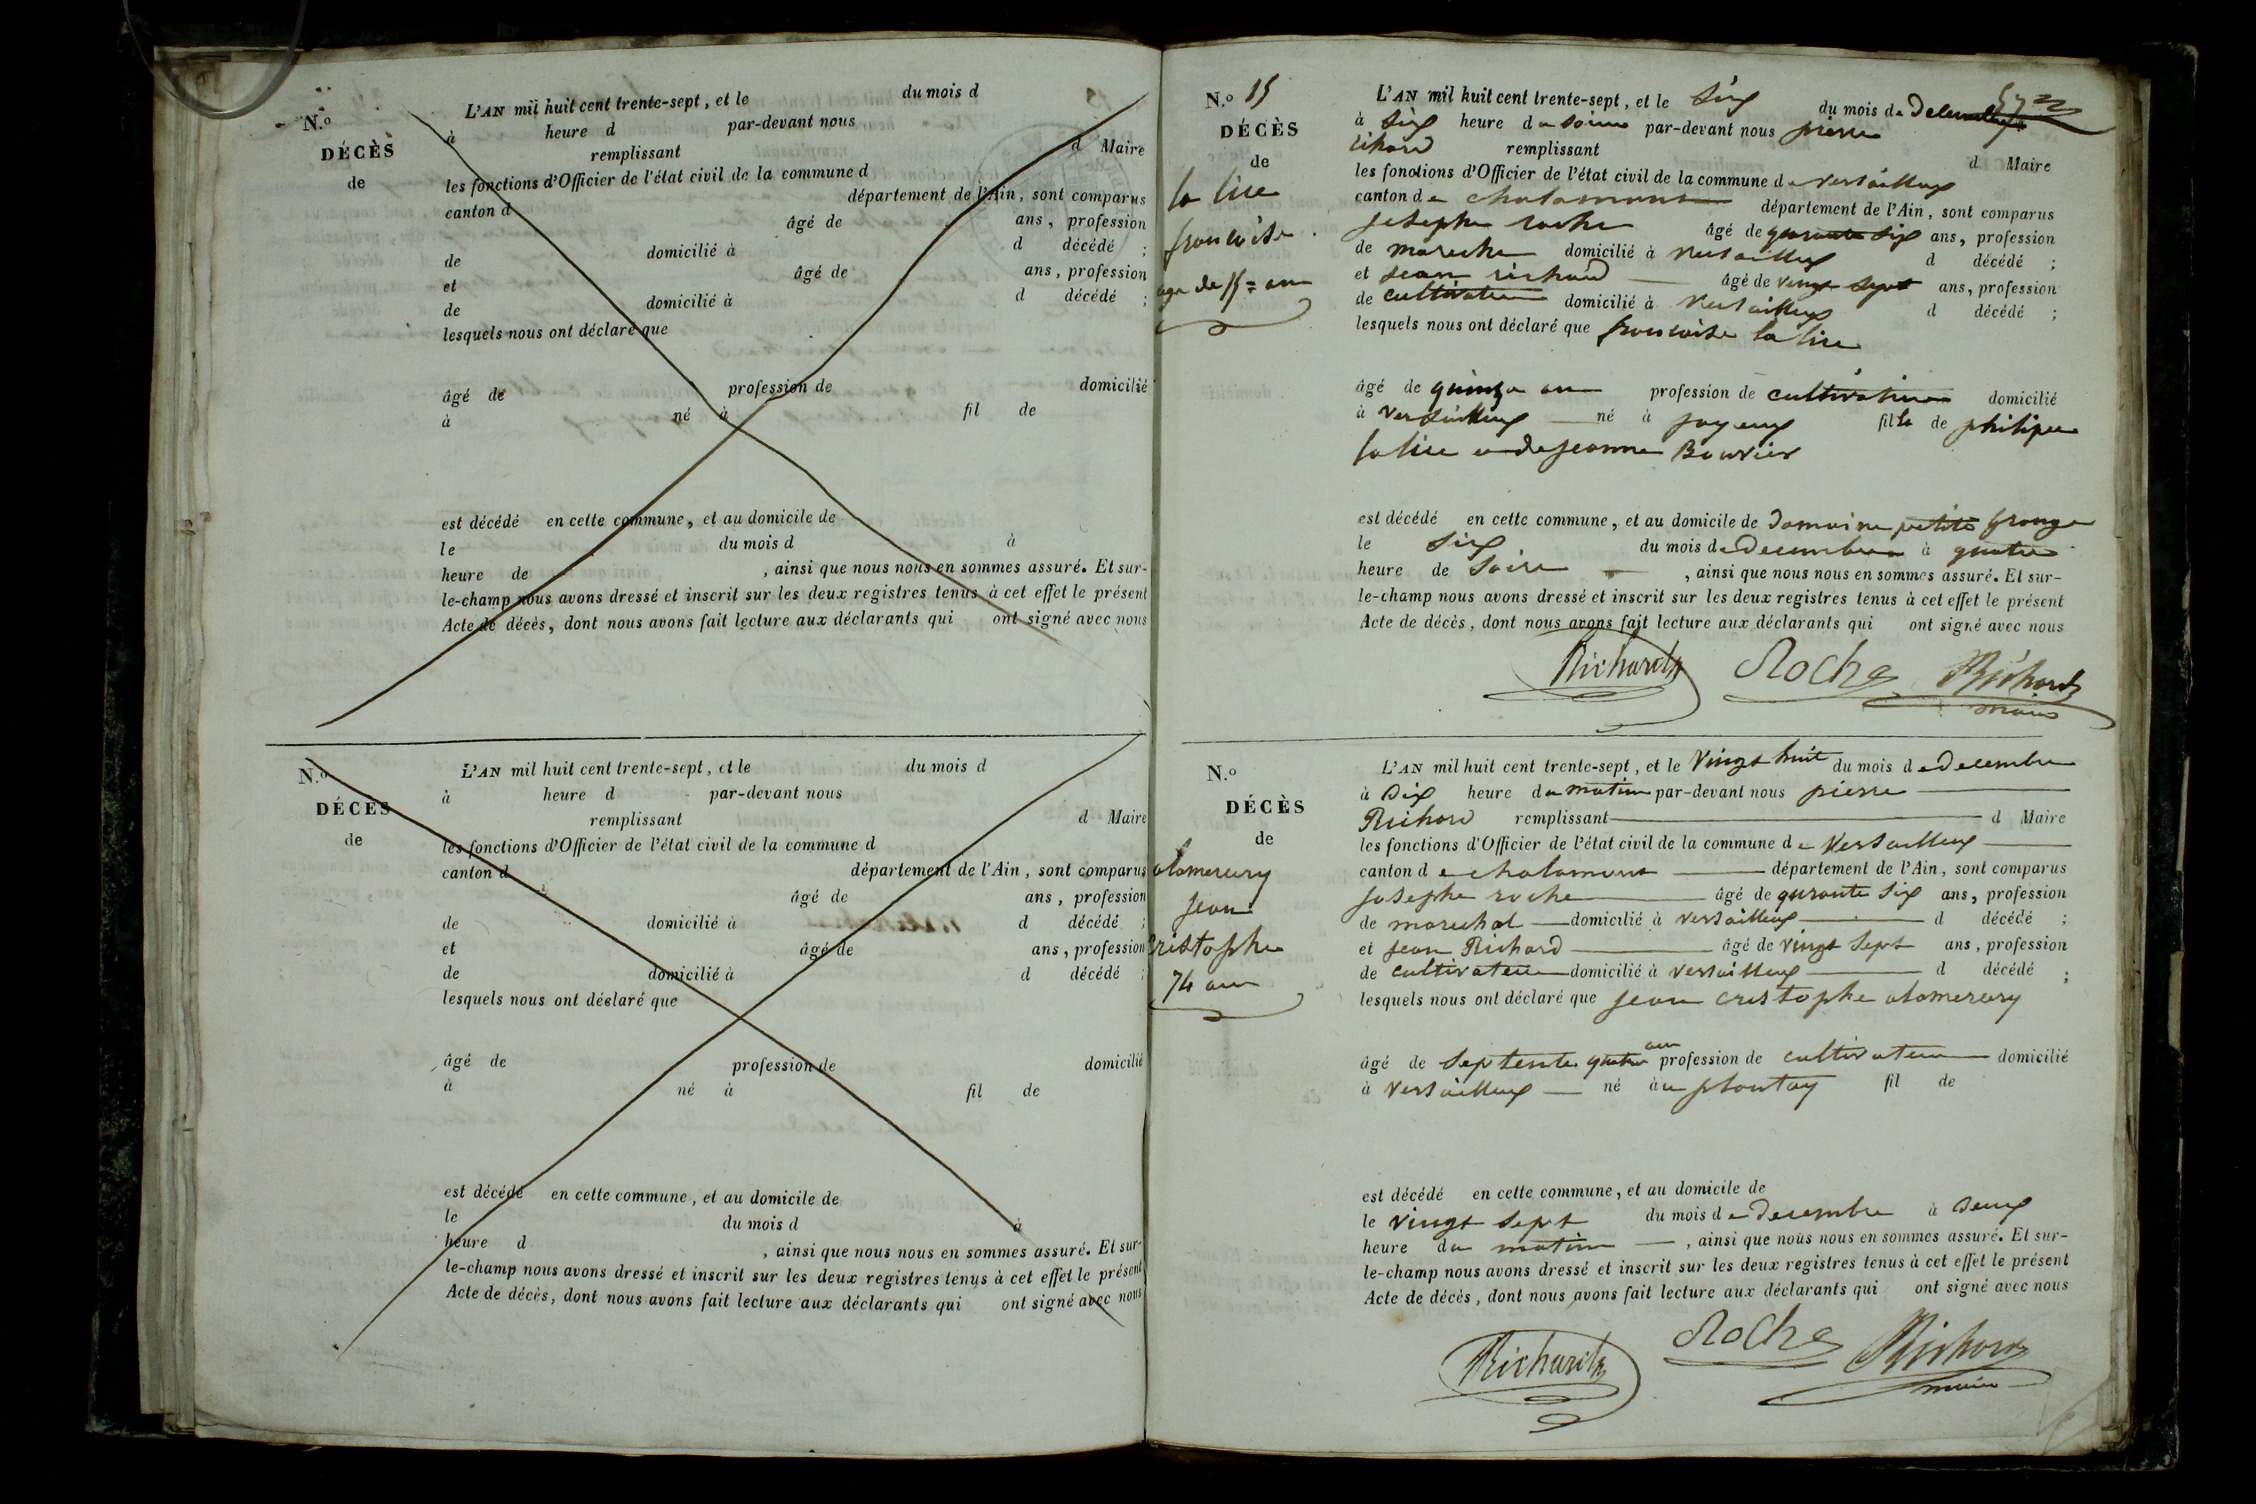 N.o
DÉCÈS
de
L'AN mil huit cent trente-sept, et le du mois d
à heure d par-devant nous
remplissant d Maire
les fonctions d'Officier de l'état civil de la commune d
canton d département de l'Ain, sont comparus
âgé de ans, profession
de domicilié à d décédé ;
et âgé de ans, profession
de domicilié à d décédé ;
lesquels nous ont déclaré que
âgé de profession de domicilié
à né à fil de
est décédé en cette commune, et au domicile de
le du mois d à
heure de , ainsi que nous nous en sommes assuré. Et sur-
le-champ nous avons dressé et inscrit sur les deux registres tenus à cet effet le présent
Acte de décès, dont nous avons fait lecture aux déclarants qui ont signé avec nous
N.o
DÉCÈS
de
L'AN mil huit cent trente-sept, et le du mois d
à heure d par-devant nous
remplissant d Maire
les fonctions d'Officier de l'état civil de la commune d
canton d département de l'Ain, sont comparus
âgé de ans, profession
de domicilié à d décédé ;
et âgé de ans, profession
de domicilié à d décédé ;
lesquels nous ont déclaré que
âgé de profession de domicilié
à né à fil de
est décédé en cette commune, et au domicile de
le du mois d à
heure d , ainsi que nous nous en sommes assuré. Et sur-
le-champ nous avons dressé et inscrit sur les deux registres tenus à cet effet le présent
Acte de décès, dont nous avons fait lecture aux déclarants qui ont signé avec nous
N.o 15
DÉCÈS
de
la lice
francoise
age de 15 = an
L'AN mil huit cent trente-sept, et le Six du mois de Decembre
à Six heure du soire par-devant nous pierre
richard remplissant d Maire
les fonctions d'Officier de l'état civil de la commune de versailleux
canton de chalamont département de l'Ain, sont comparus
josephe roche âgé de quarante Six ans, profession
de mareche domicilié à versailleux d décédé ;
et jean richard âgé de vingt sept ans, profession
de cultivateur domicilié à versailleux d décédé ;
lesquels nous ont déclaré que francoise la lice
âgé de quinze an profession de cultivateur domicilié
à versailleux né à joyeux fille de philipe
la lice e de jeanne Bouvier
est décédé en cette commune, et au domicile de domaine petite Grange
le Six du mois de Decembre à quatre
heure de Soire , ainsi que nous nous en sommes assuré. Et sur-
le-champ nous avons dressé et inscrit sur les deux registres tenus à cet effet le présent
Acte de décès, dont nous avons fait lecture aux déclarants qui ont signé avec nous
Richard Roche Richard
maire
N.o
DÉCÈS
de
alamercery
jean
cristophe
74 an
L'AN mil huit cent trente-sept, et le Vingt huit du mois de Decembre
à Dix heure du matin par-devant nous pierre
Richard remplissant d Maire
les fonctions d'Officier de l'état civil de la commune de Versailleux
canton de chalamont département de l'Ain, sont comparus
josephe roche âgé de quarante Six ans, profession
de marechal domicilié à versailleux d décédé ;
et jean Richard âgé de vingt Sept ans, profession
de cultivateur domicilié à versailleux d décédé ;
lesquels nous ont déclaré que jean cristophe alamercery
âgé de Septente quatre an profession de cultivateur domicilié
à versailleux né àu plantay fil de
est décédé en cette commune, et au domicile de
le vingt Sept du mois de Decembre à Deux
heure du matin , ainsi que nous nous en sommes assuré. Et sur-
le-champ nous avons dressé et inscrit sur les deux registres tenus à cet effet le présent
Acte de décès, dont nous avons fait lecture aux déclarants qui ont signé avec nous
Richard Roche Richard
maire